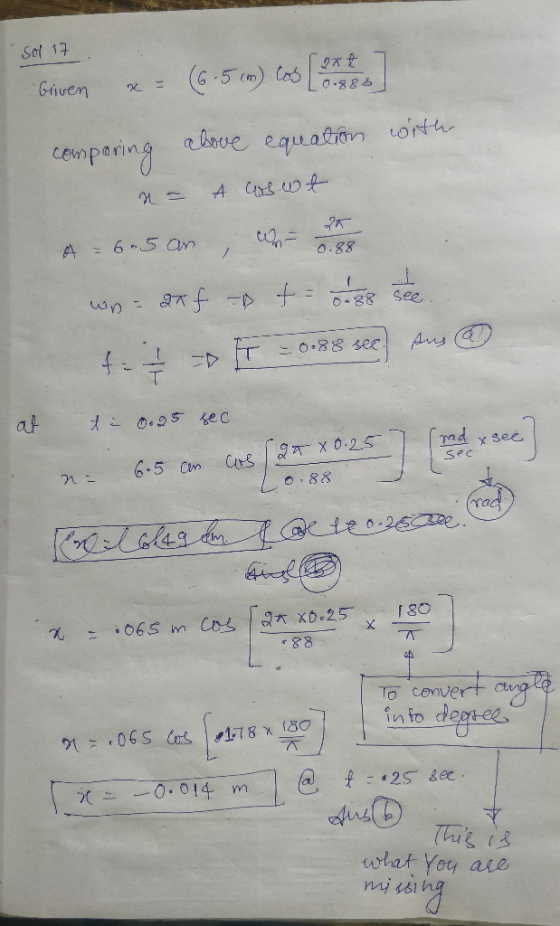 Sol 17.
Given x = (6.5 cm) cos [2πt / 0.88s]
comparing above equation with
x = A cos wt
A = 6.5 cm , wn = 2π / 0.88
wn = 2πf => f = 1 / 0.88 1 / sec.
f = 1 / T => T = 0.88 sec Ans (a)
at t = 0.25 sec
x = 6.5 cm cos [2π × 0.25 / 0.88] [rad / sec × sec]
rad
x = 6.49 cm @ t = 0.25 sec.
Ans
x = .065 m cos [2π × 0.25 / .88 × 180 / π]
To convert angle
into degree
x = .065 cos [1.78 × 180 / π]
x = -0.014 m @ t = .25 sec.
Ans (b)
This is
what You are
missing